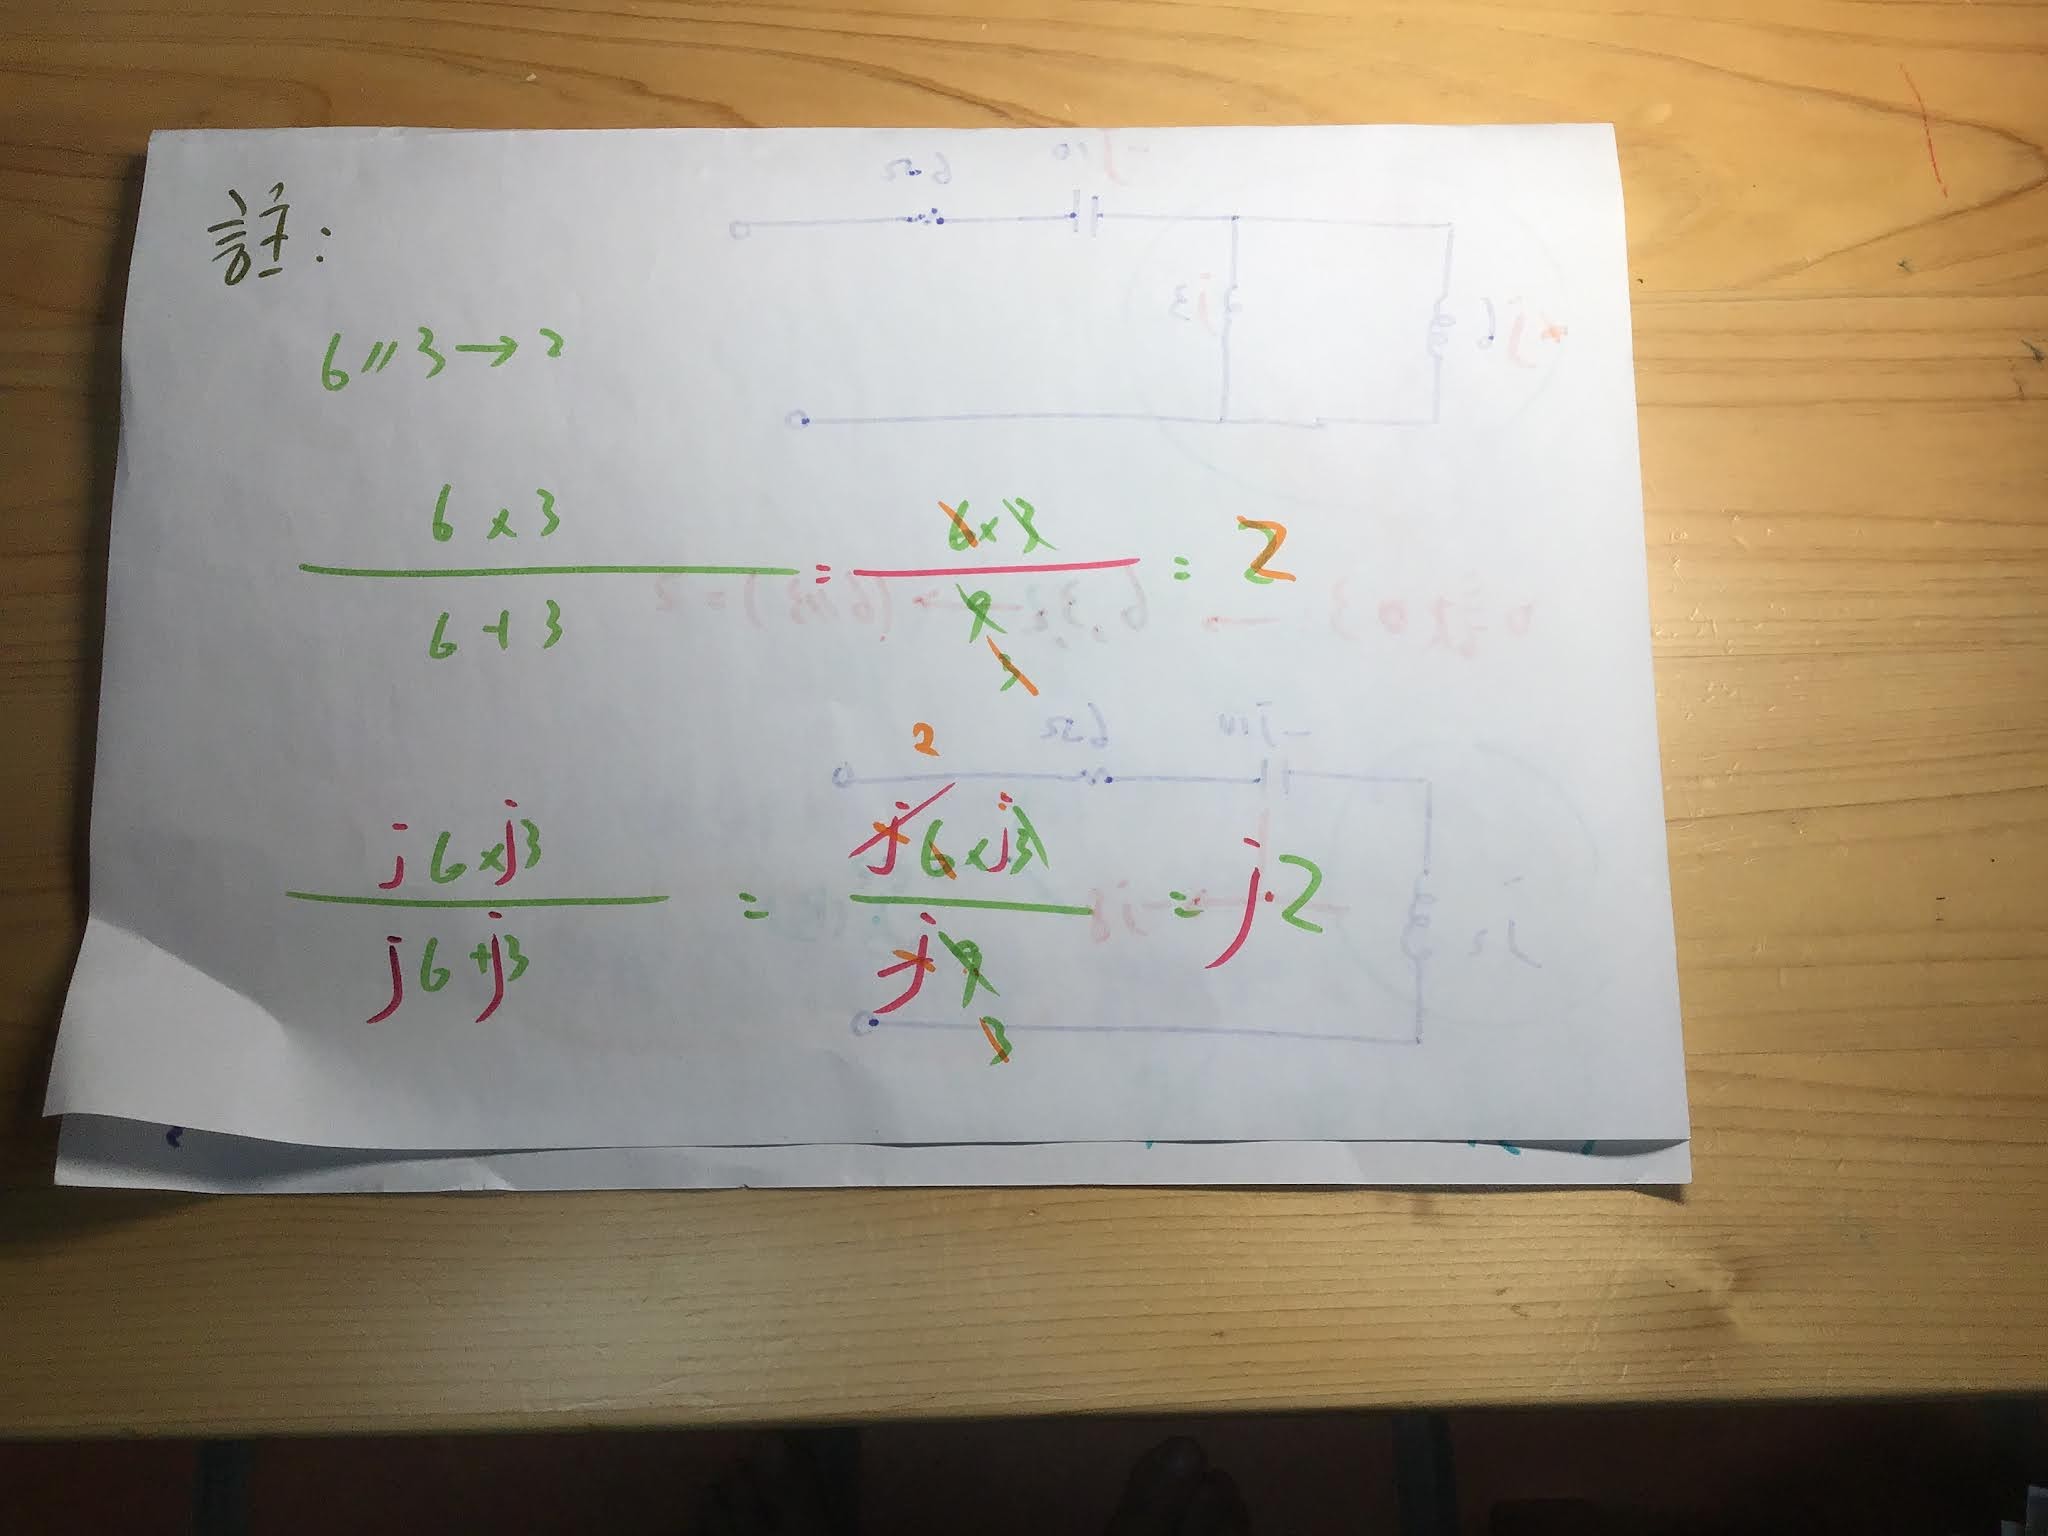 註:
6 // 3 → 2
6 × 3 / 6 + 3 = 6 × 3 / 9 3 = 2
2
j6 × j3 / j6 + j3 = j6 × j3 / j9 3 = j·2